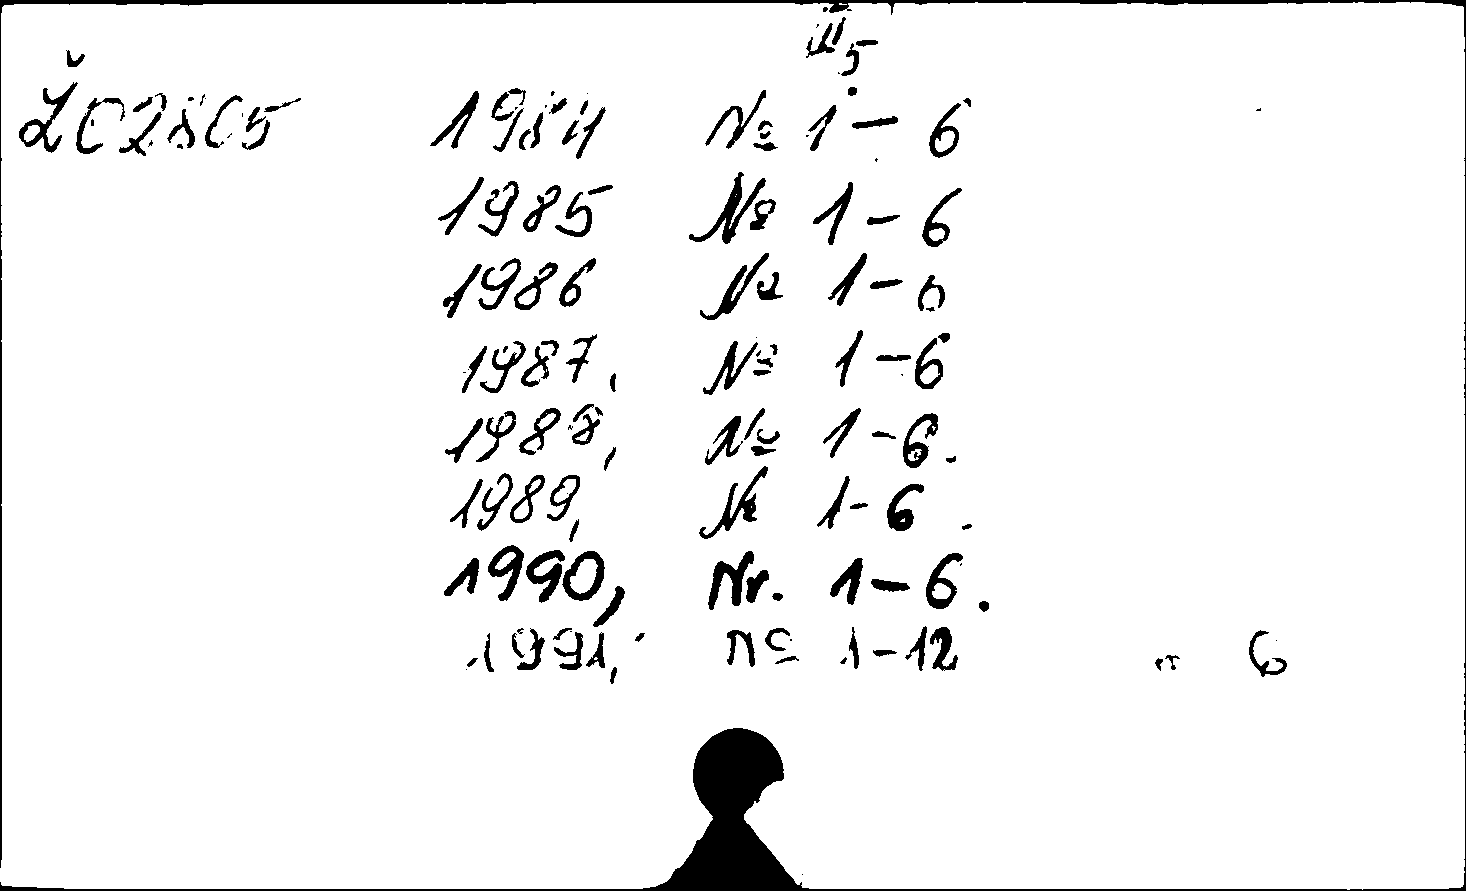 III5
Ž02805 1984 № 1-6
1985 № 1-6
1986 № 1-6
1987, № 1-6
1988, № 1-6.
1989, № 1-6.
1990, Nr. 1-6.
1991, № 1-12 6